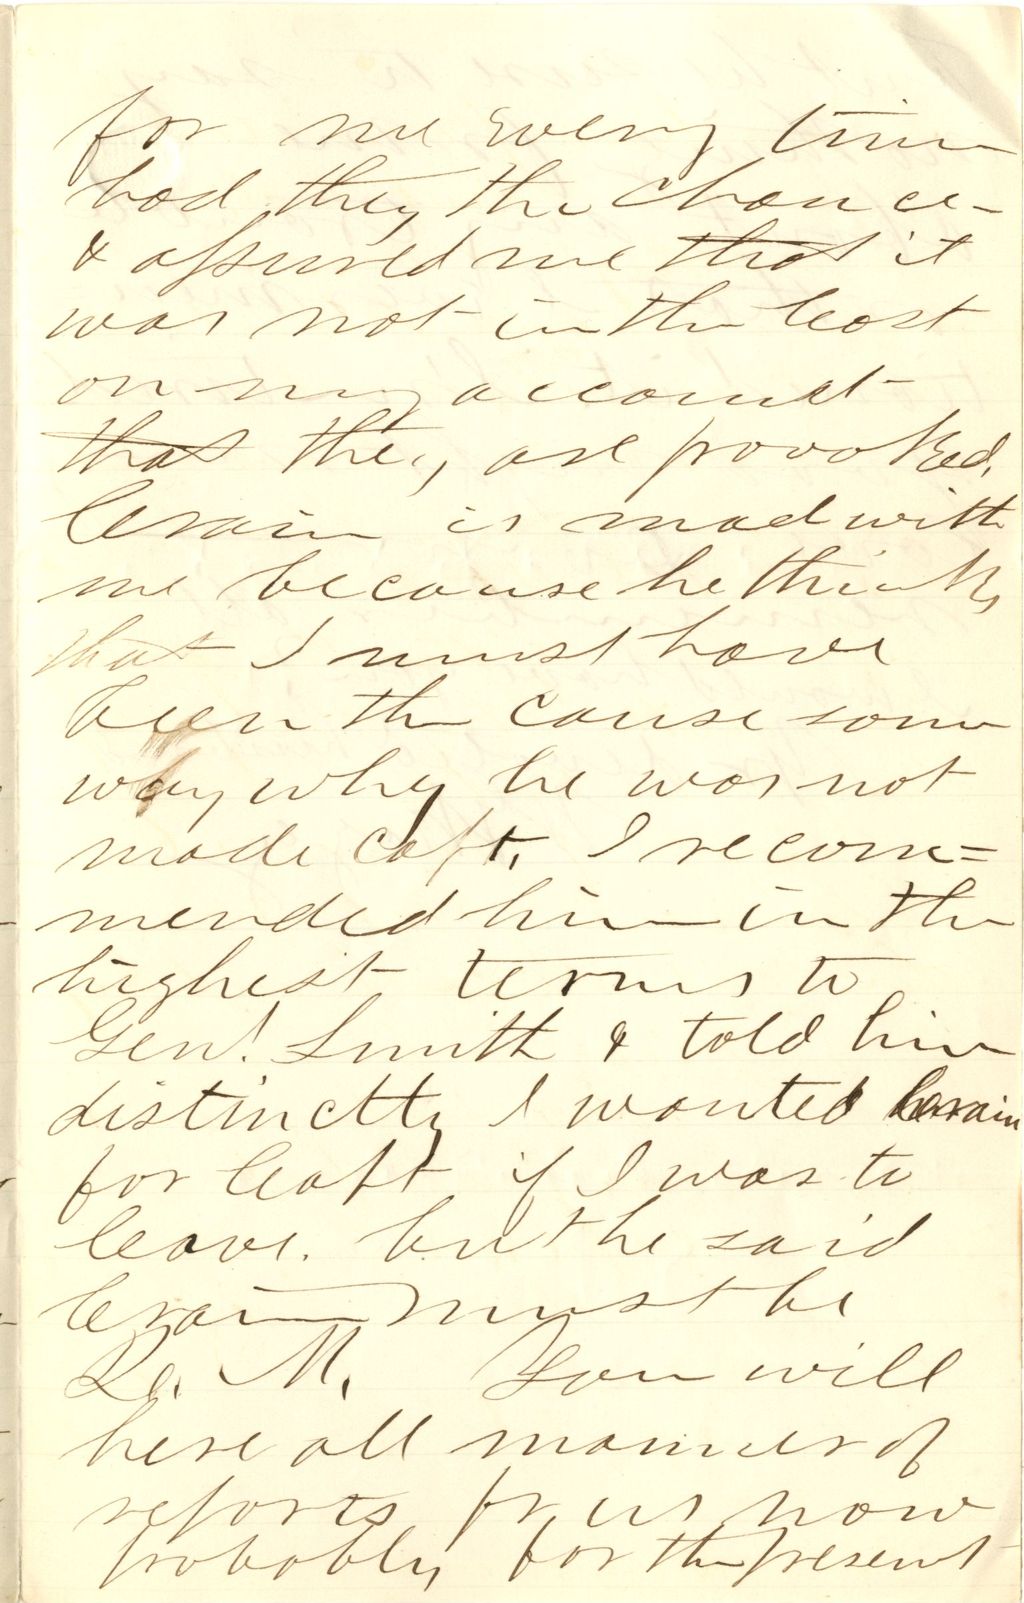 for me every time
had they the chance-
& assured me that it
was not in the least
on my account
that they are provoked.
Crain is mad with
me because he thinks
that I must have
been the cause some
way why he was not
made Capt. I recom=
mended him in the
highest terms to
Genl. Smith & told him
distinctly I wanted Crain
for Capt if I was to
leave. but he said
Crain must be
Q. M. You will
here all manner of
reports fr us now
probably for the present